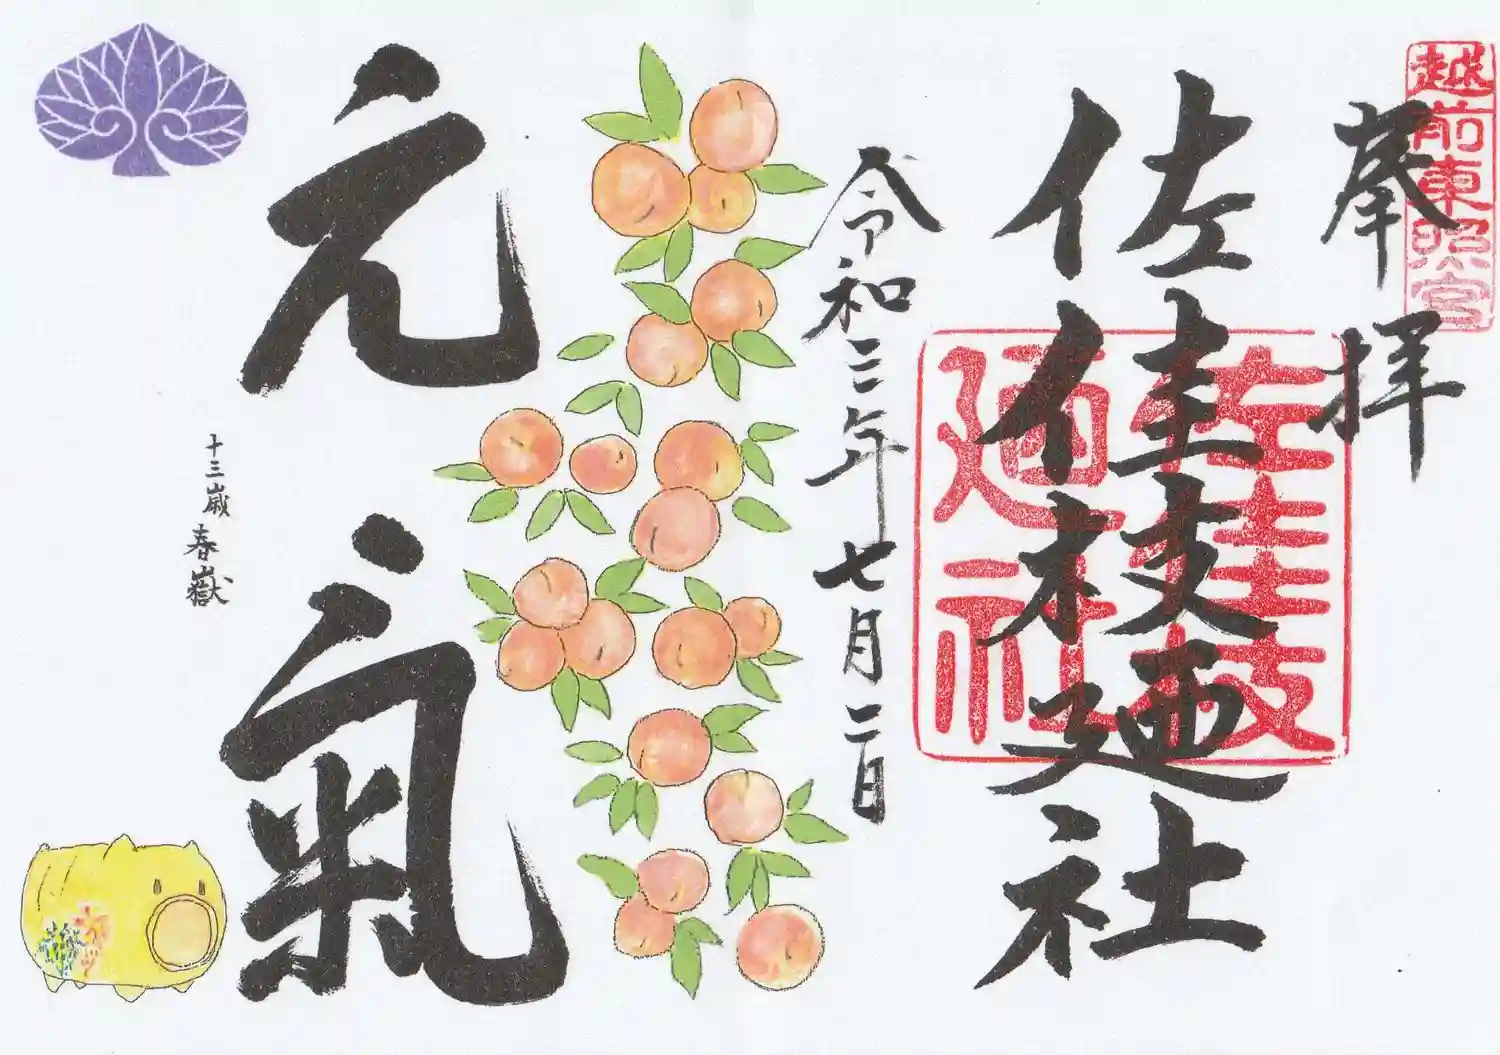 越前東照宮
奉拝
佐佳枝廼社
佐佳枝
廼社
令和三年七月二日
元氣
十三歳春嶽